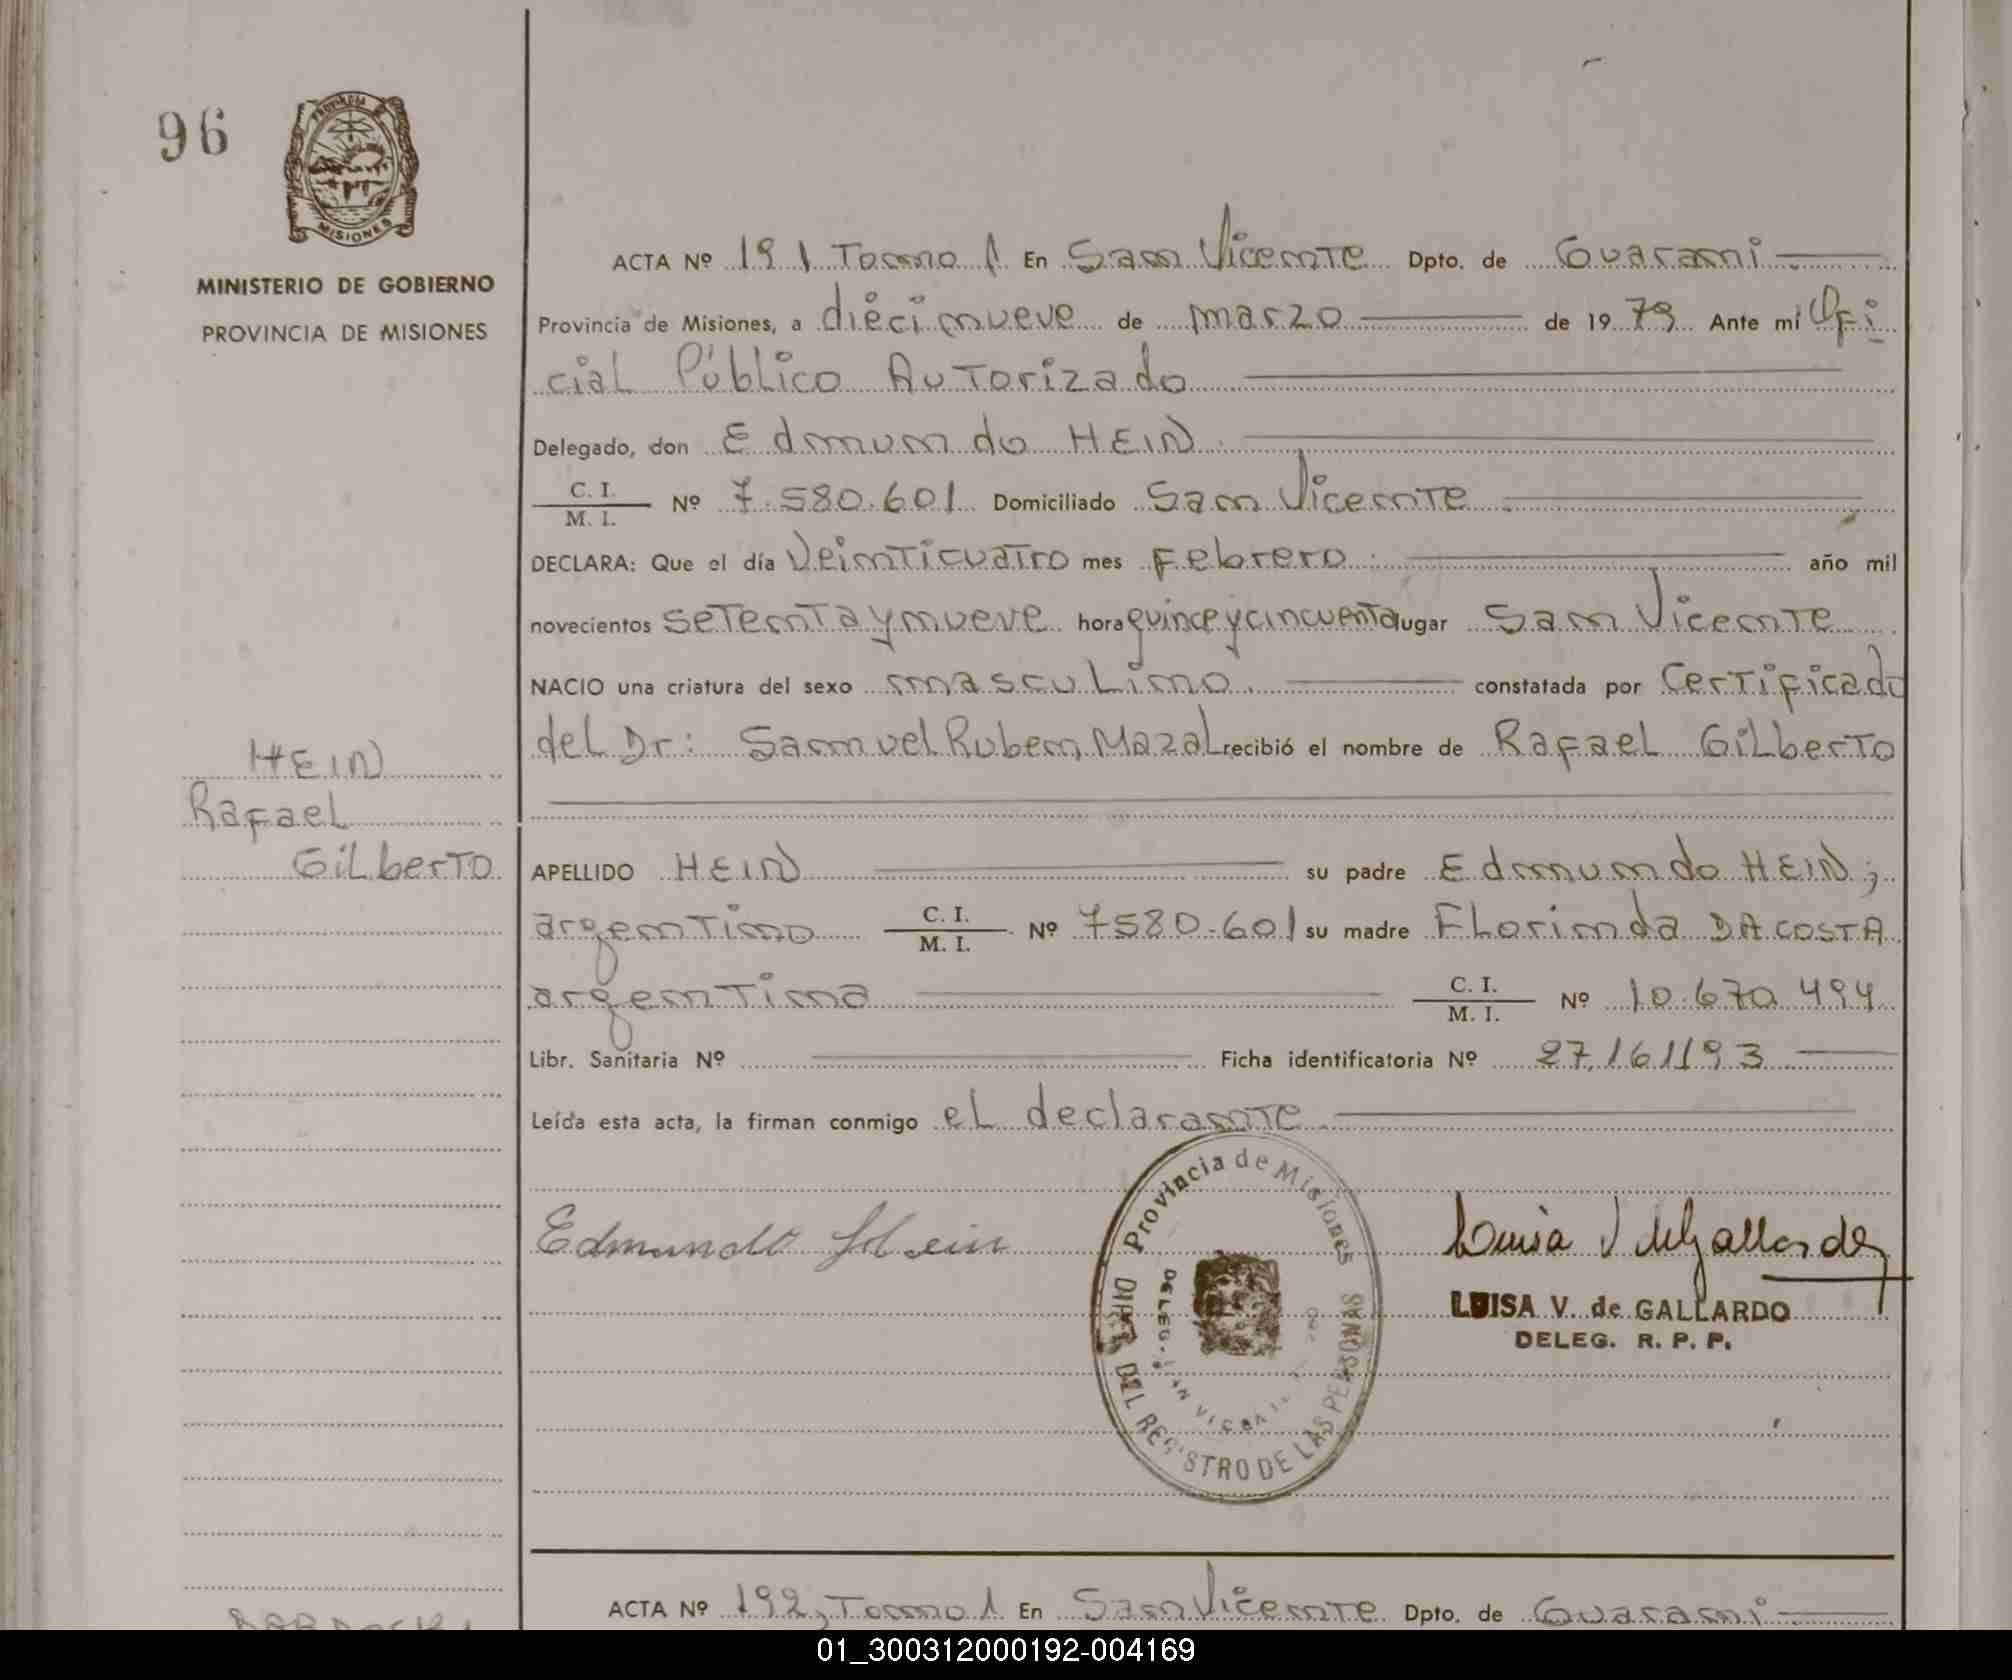 96
PROVINCIA DE
MISIONES
MINISTERIO DE GOBIERNO
PROVINCIA DE MISIONES
ACTA Nº 191 Tomo 1 En San Vicente Dpto. de Guarani
Provincia de Misiones, a diecinueve de marzo de 1979 Ante mí Ofi
cial Público Autorizado
Delegado, don Edmundo HEIN.
C. I. / M. I. Nº 7.580.601 Domiciliado San Vicente
DECLARA: Que el día Veinticuatro mes Febrero año mil
novecientos setenta y nueve hora quince y cincuenta lugar San Vicente
NACIO una criatura del sexo masculino. constatada por Certificado
del Dr: Samuel Ruben Mazal recibió el nombre de Rafael Gilberto
HEIN
Rafael
Gilberto
APELLIDO HEIN su padre Edmundo HEIN;
argentino C. I. / M. I. Nº 7580.601 su madre Florinda DA COSTA
argentina C. I. / M. I. Nº 10.670.494
Libr. Sanitaria Nº Ficha identificatoria Nº 27.161193
Leída esta acta, la firman conmigo el declarante
Edmundo Hein
Luisa V de Gallardo
LUISA V. de GALLARDO
DELEG. R. P. P.
Provincia de Misiones
DEL REGISTRO DE LAS PERSONAS
DELEG.
ACTA Nº 192, Tomo 1 En San Vicente Dpto. de Guarani
01_300312000192-004169